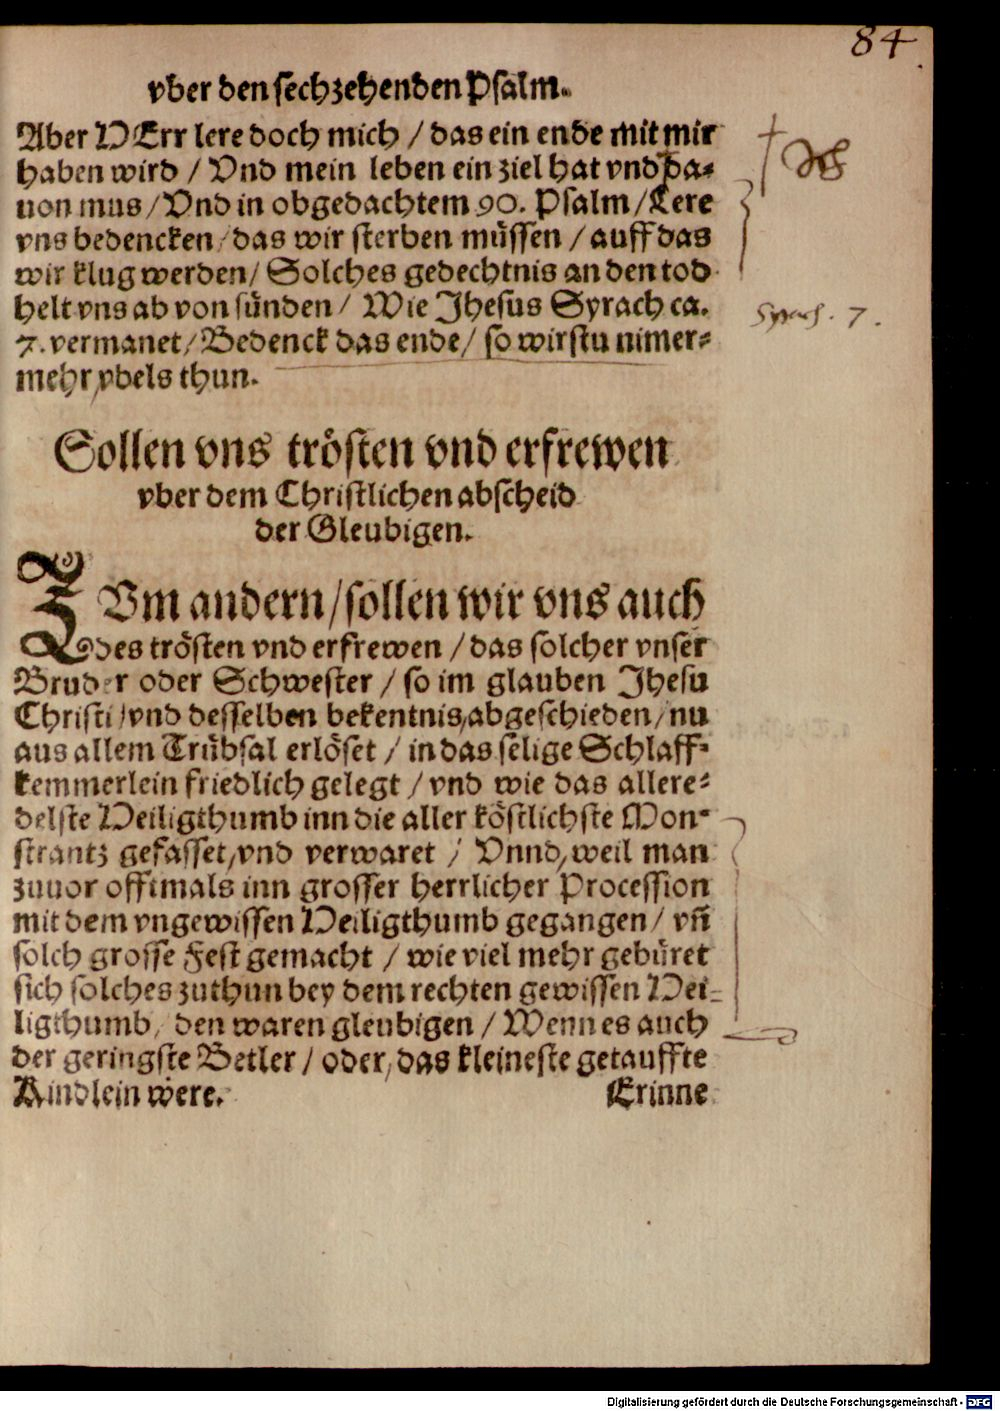 84
vber den sechzehenden Psalm.
Aber HErr lere doch mich / das ein ende mit mir
haben wird / Vnd mein leben ein ziel hat vnd da-
uon mus / Vnd in obgedachtem 90. Psalm / Lere
vns bedencken / das wir sterben müssen / auff das
wir klug werden / Solches gedechtnis an den tod
helt vns ab von sünden / Wie Jhesus Syrach ca.
7. vermanet / Bedenck das ende / so wirstu nimer-
mehr vbels thun.
Syrach. 7.
Sollen vns trösten vnd erfrewen
vber dem Christlichen abscheid
der Gleubigen.
ZVm andern / sollen wir vns auch
des trösten vnd erfrewen / das solcher vnser
Bruder oder Schwester / so im glauben Jhesu
Christi / vnd desselben bekentnis, abgeschieden / nu
aus allem Trübsal erlöset / in das selige Schlaff-
kemmerlein friedlich gelegt / vnd wie das allere-
delste Heiligthumb inn die aller köstlichste Mon-
strantz gefasset, vnd verwaret / Vnnd, weil man
zuuor offtmals inn grosser herrlicher Procession
mit dem vngewissen Heiligthumb gegangen / vn̄
solch grosse Fest gemacht / wie viel mehr gebüret
sich solches zuthun bey dem rechten gewissen Hei-
ligthumb, den waren gleubigen / Wenn es auch
der geringste Betler / oder, das kleineste getauffte
Kindlein were.
Erinne
Digitalisierung gefördert durch die Deutsche Forschungsgemeinschaft - DFG